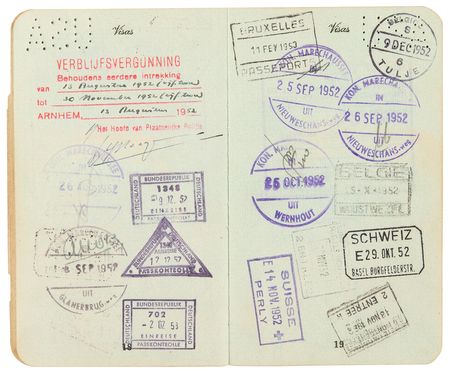 Visas
VERBLIJFSVERGUNNING
Behoudens eerdere intrekking
van 13 Augustus 1952
tot 30 November 1952
ARNHEM, 13 Augustus 1952
Het Hoofd van Plaatselijke Politie
KON. MARECHAUSSEE
26 AUG 1952
UIT
BUNDESREPUBLIK
DEUTSCHLAND
DEUTSCHLAND
1348
9.12.52
EINREISE
PASSKONTROLLE
SEP 1952
UIT
GLANERBRUG
17 12 52
PASSKONTROLLE
BUNDESREPUBLIK
DEUTSCHLAND
DEUTSCHLAND
702
-2.02.53
EINREISE
PASSKONTROLLE
18
Visas
BRUXELLES
11 FEV 1953
PASSEPORT
BELGIE
S
9 DEC 1952
6
KON. MARECHAUSSEE
25 SEP 1952
UIT
NIEUWESCHANS
KON. MARECH
IN
26 SEP 1952
UIT
NIEUWESCHANS
KON. MARECHAUSSEE
26 OCT. 1952
UIT
WERNHOUT
BELGIE
X-1952
SCHWEIZ
E 29. OKT. 52
BASEL BURGFELDERSTR.
SUISSE
E 14 NOV. 1952
PERLY
2 ENTREE
18 NOV 195
19